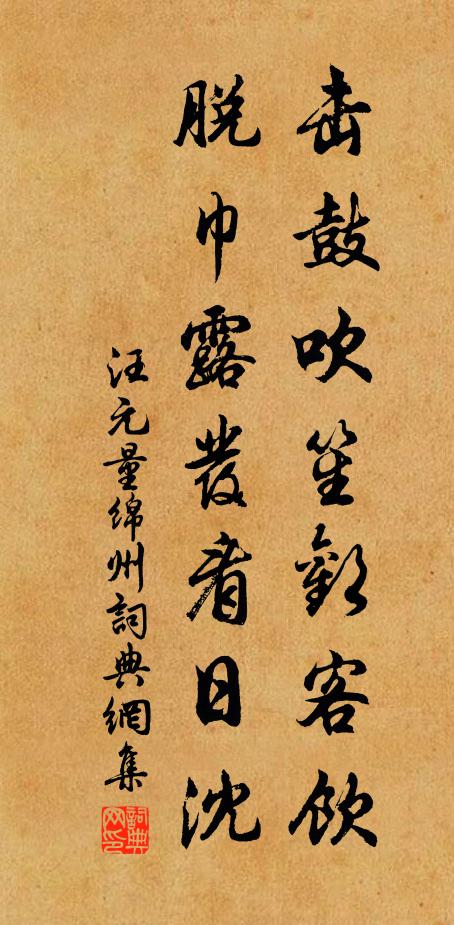 击鼓吹笙劝客饮
脱巾露发看日沈
汪元量绵州词典网集
词典网印